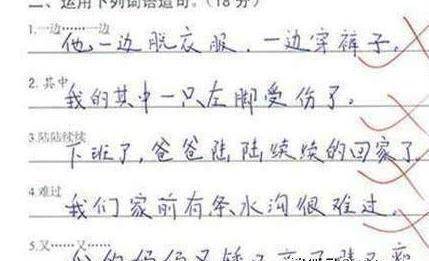 二、运用下列词语造句。(18分)
1.一边……一边
他一边脱衣服，一边穿裤子。
2.其中
我的其中一只左脚受伤了。
3.陆陆续续
下班了,爸爸陆陆续续的回家了
4.难过
我们家前有条水沟很难过。
5.又……又……